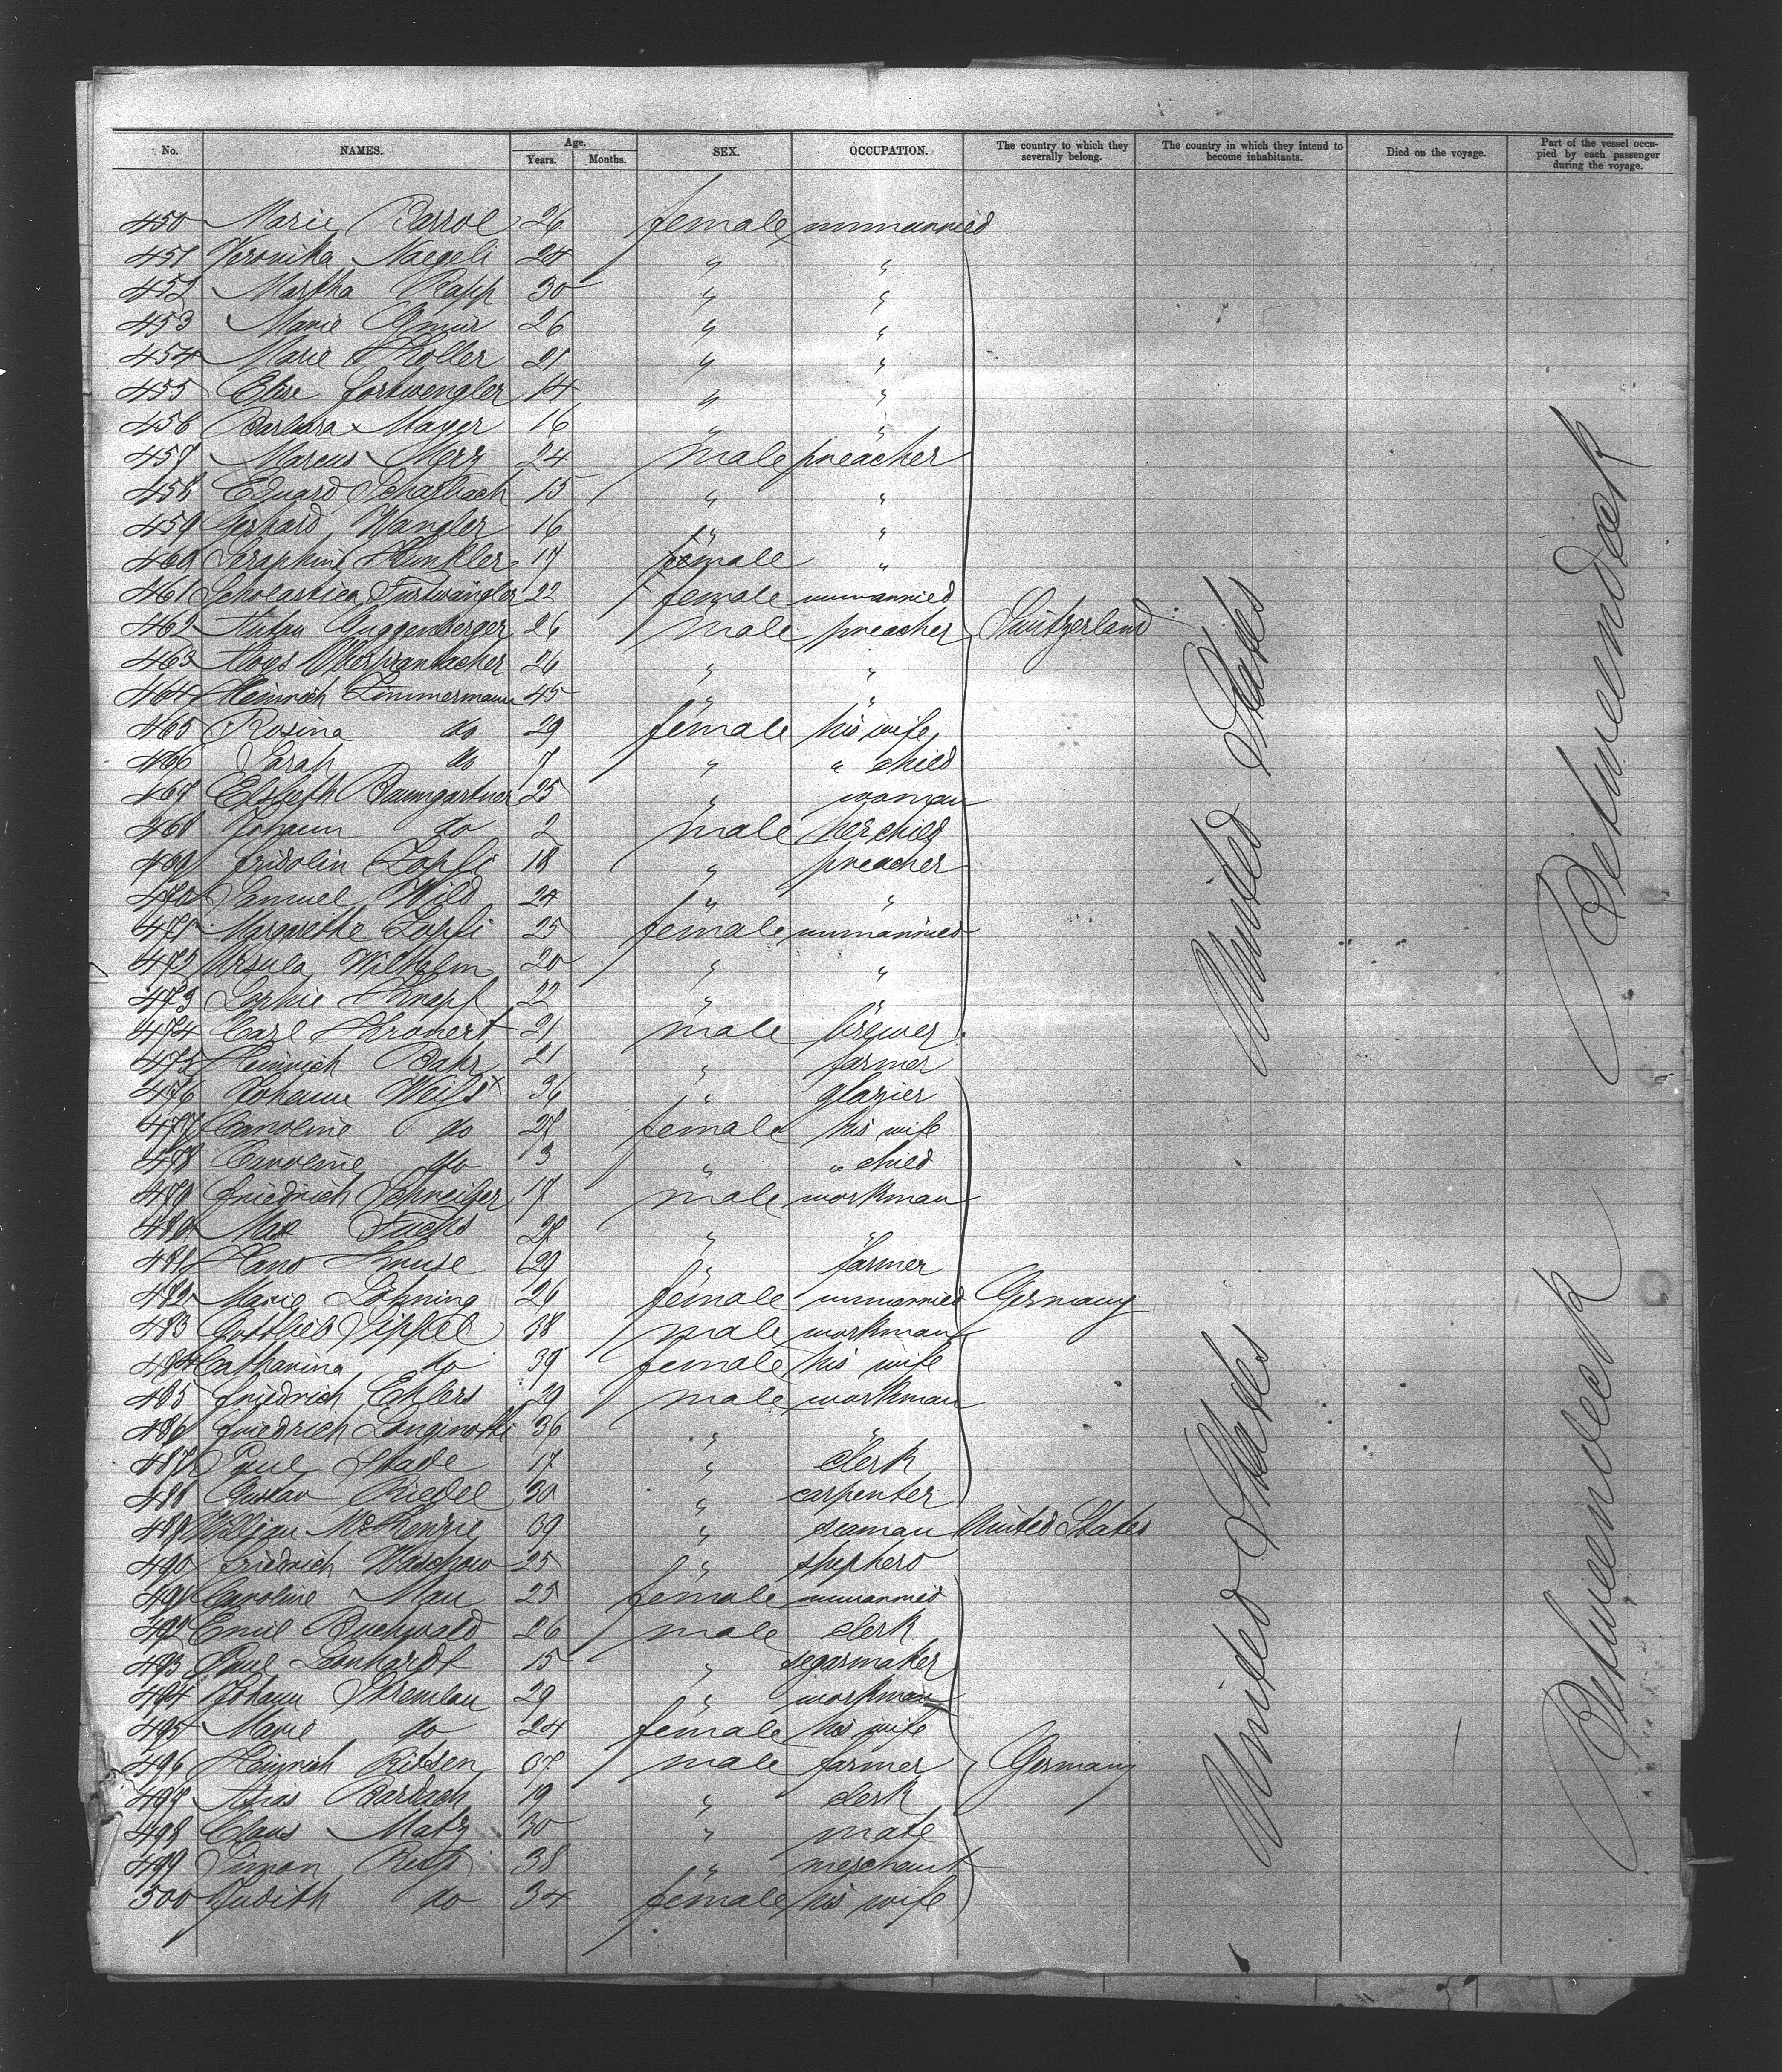 No. NAMES. Age. Years. Months. SEX. OCCUPATION. The country to which they severally belong. The country in which they intend to become inhabitants. Died on the voyage. Part of the vessel occupied by each passenger during the voyage.
450 Marie Barrol 26 female unmarried
451 Veronika Naegeli 24 " "
452 Martha Rapp 30 " "
453 Marie Gmür 26 " "
454 Marie Koller 21 " "
455 Elise Fortwengler 14 " "
456 Barbara Mayer 16 " "
457 Marcus Merz 24 male preacher
458 Eduard Scharbach 15 " "
459 Gerhard Wangler 16 " "
460 Seraphine Kunkler 17 female "
461 Scholastica Furtwängler 22 female unmarried
462 Anton Guggenberger 26 male preacher Switzerland
463 Aloys 26 " "
464 Heinrich Zimmermann 45 " "
465 Rosina do 29 female his wife
466 Sarah do 7 " " child
467 Elsbeth Baumgartner 25 " woman
468 Johann do 2 male her child
469 Fridolin Zopfi 18 " preacher
470 Samuel Wild 24 " "
471 Margarethe Zopfi 25 female unmarried
472 Ursula Wilhelm 20 " "
473 Sophie Knepf 22 " "
474 Carl Kronert 21 male brewer
475 Heinrich Bahr 21 " farmer
476 Johann Weiss 36 " glazier
477 Caroline do 27 female his wife
478 Caroline do 3 " " child
479 Friedrich Schreiber 17 male workman
480 Max Fuchs 27 " "
481 Hans Kruse 29 " farmer
482 Marie Löhning 26 female unmarried Germany
483 Gottlieb Sippel 38 male workman
484 Catharina do 39 female his wife
485 Friedrich Ehlers 29 male workman
486 Friedrich Longinotti 36 " "
487 Paul Stade 17 " clerk
488 Gustav Riedel 30 " carpenter
489 William McKenzie 39 " seaman United States
490 Friedrich Waschow 25 " shepherd
491 Caroline Mau 25 female unmarried
492 Emil Buchwald 26 male clerk
493 Paul Leonhardt 15 " segarmaker
494 Johann Stremlau 29 " workman
495 Marie do 24 female his wife
496 Heinrich Ritsen 37 male farmer Germany
497 Bardach 19 " clerk
498 Claus Matz 30 " mate
499 Simon 38 " merchant
500 Judith do 34 female his wife
United States
Betweendeck
United States
Betweendeck